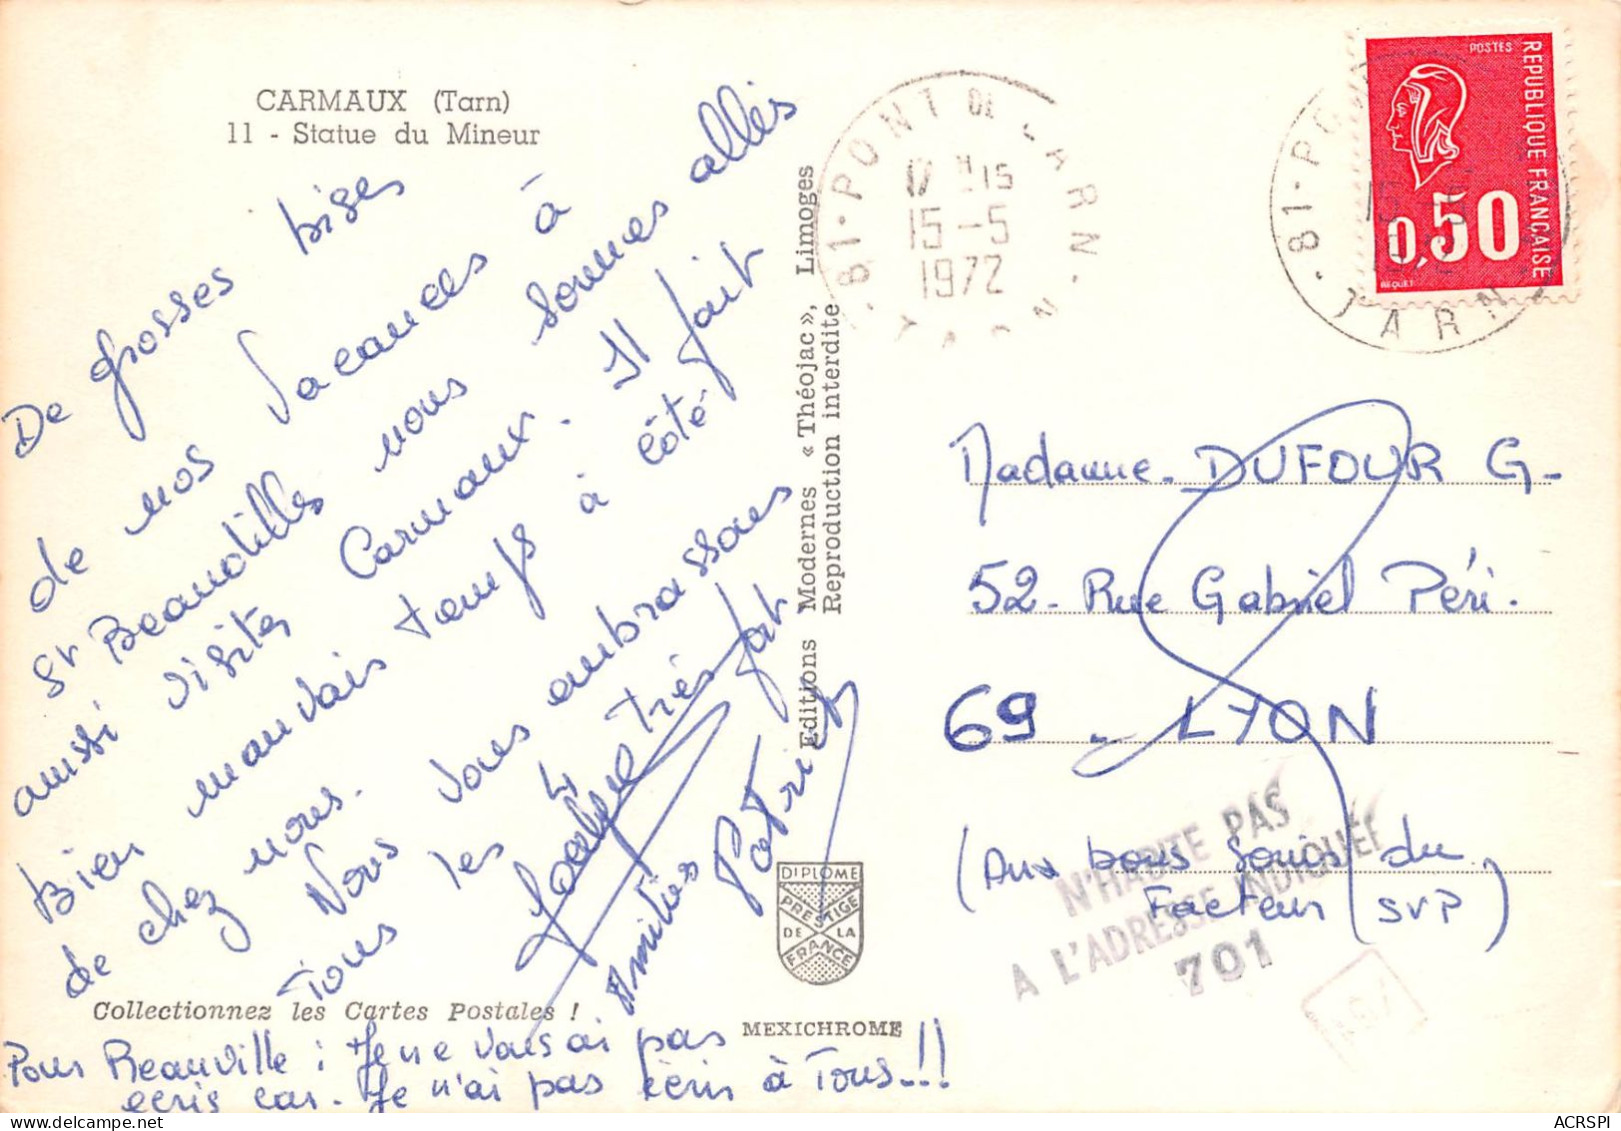 CARMAUX (Tarn)
11 - Statue du Mineur
De grosses bises
de nos vacances à
St Beauotilles nous sommes allés
aussi visiter Carmaux. Il fait
bien mauvais temps à côté
de chez nous. Nous vous embrassons
Tous les 4 très fort
Amitiés Patrick
Collectionnez les Cartes Postales !
Pour Reauville : Je ne vous ai pas
écris car. Je n'ai pas écris à Tous..!!
Editions Modernes « Théojac », Limoges
Reproduction interdite
DIPLOME
PRESTIGE
DE LA
FRANCE
MEXICHROME
81 · PONT DE L'ARN · TARN
17 H 15
15-5
1972
POSTES
REPUBLIQUE FRANÇAISE
0,50
BEQUET
81 · TARN
Madame. DUFOUR G-
52 - Rue Gabriel Péri.
69 - LYON
(Aux bons soins du
Facteur (SVP)
N'HABITE PAS
A L'ADRESSE INDIQUEE
701
ACRSPI